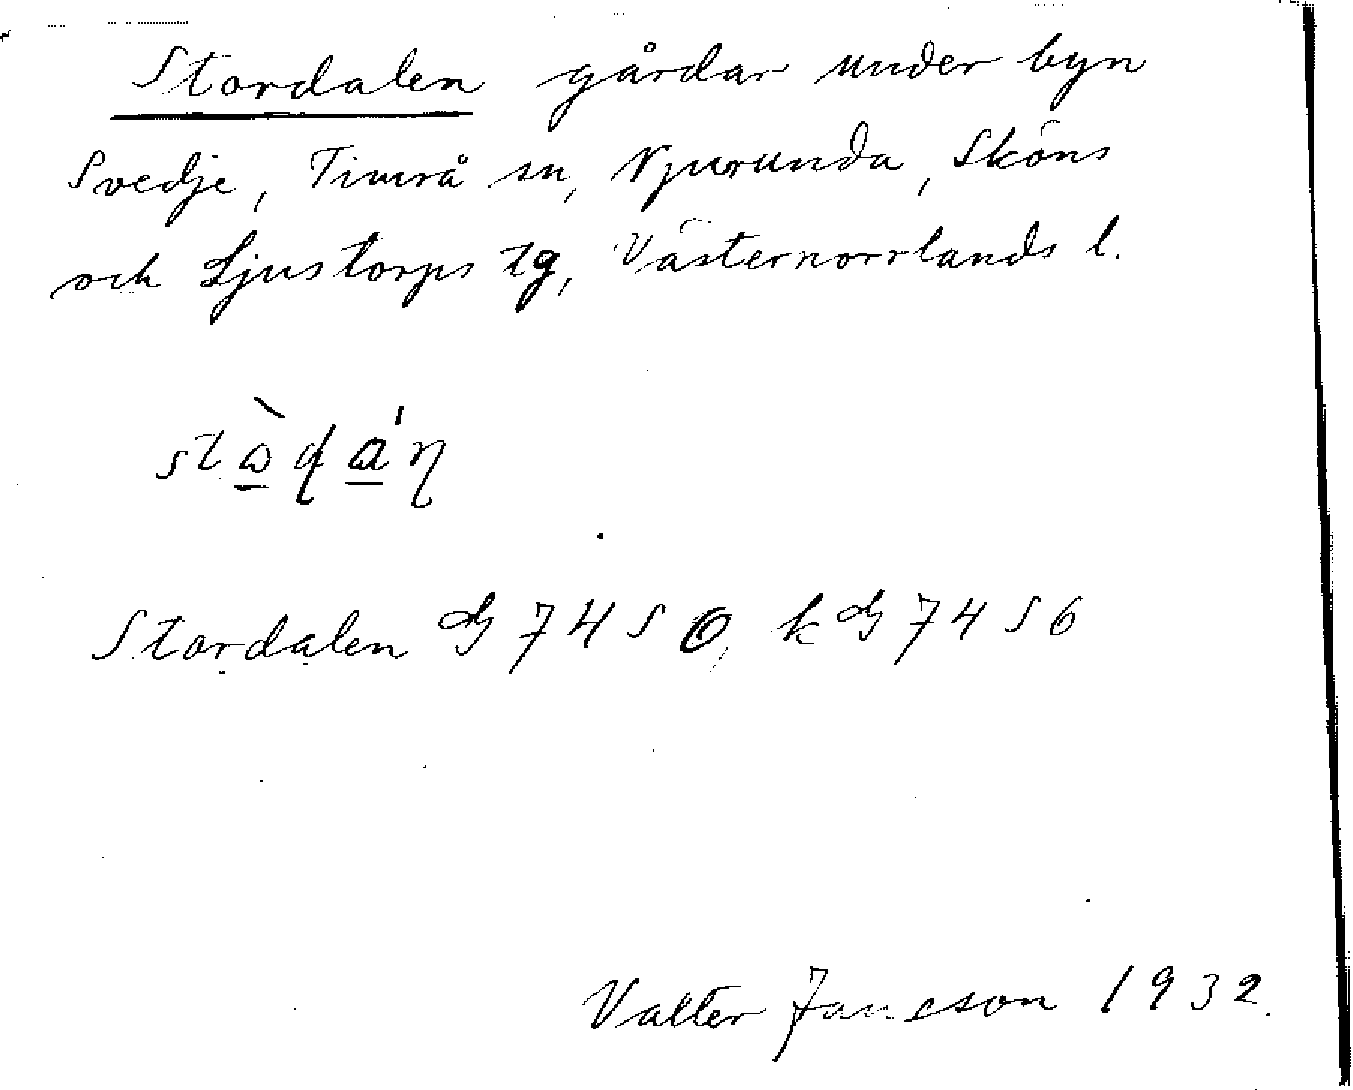 Stordalen gårdar under byn
Svedje, Timrå sn, Njurunda, Sköns
och Ljustorps tg, Västernorrlands l.
Stordalen 7450, k 7456
Valter Jansson 1932.